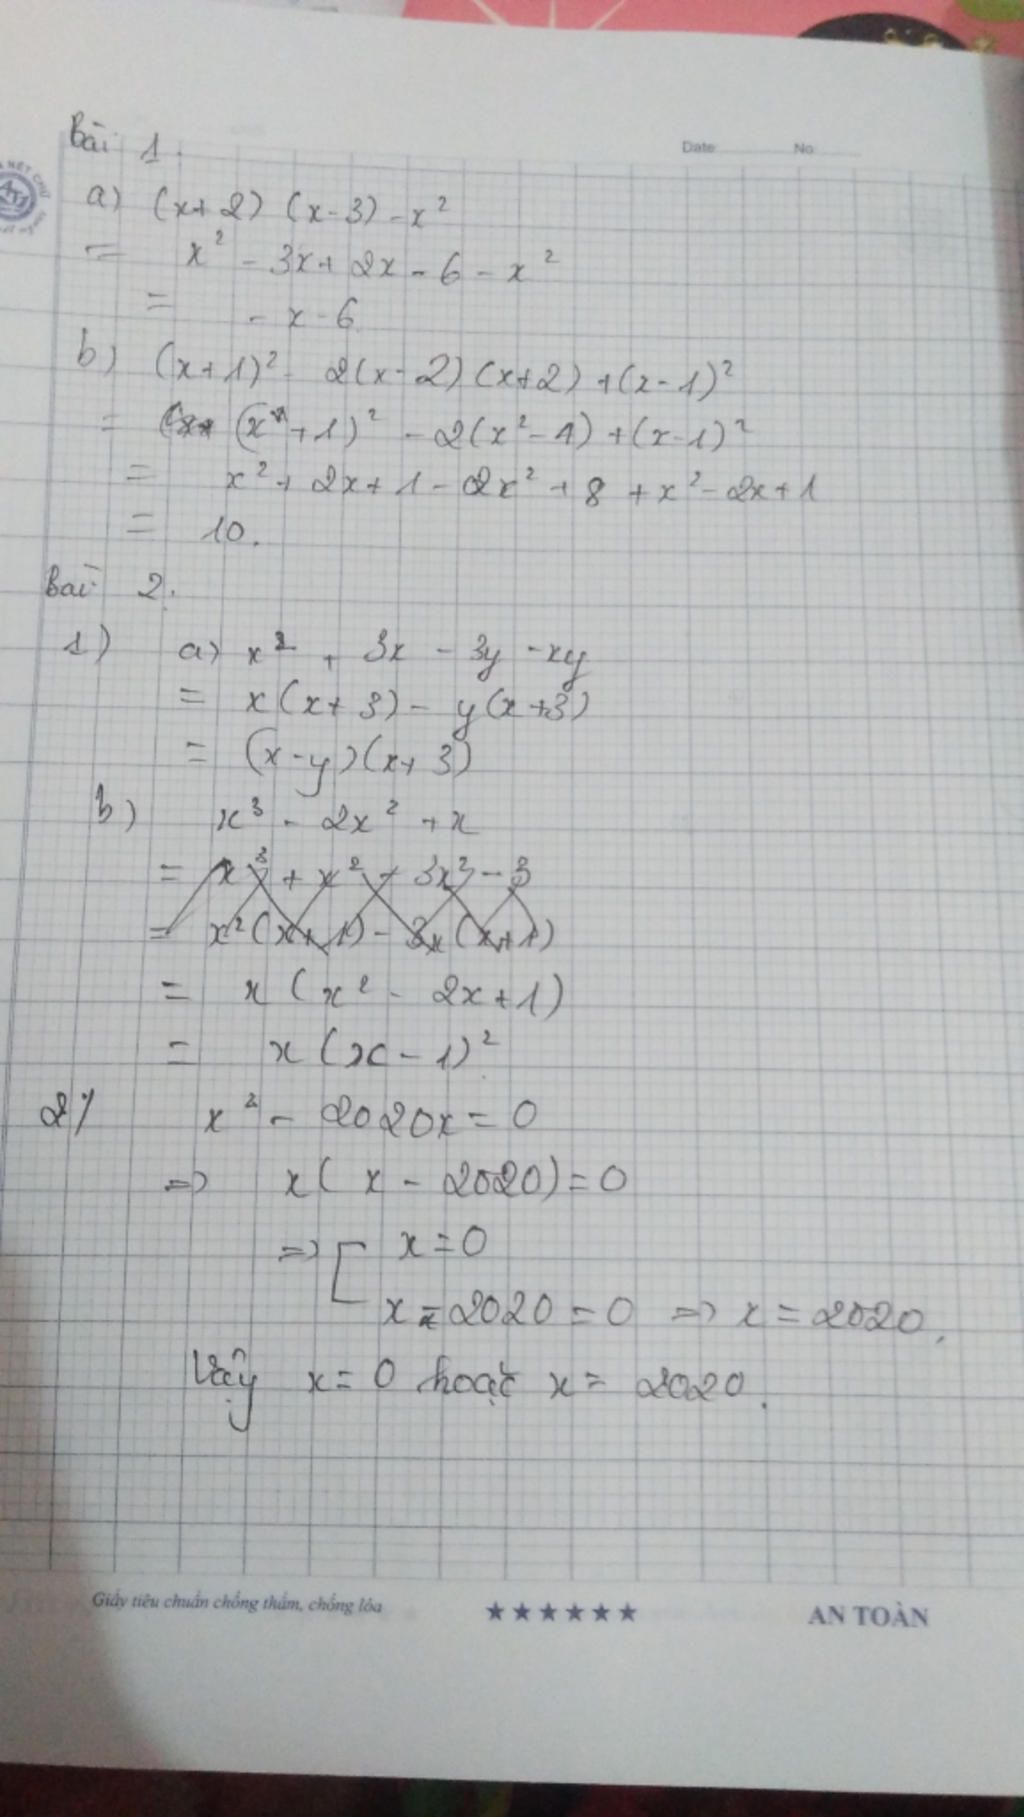 Bài 1.
Date No
a) (x+2) (x-3) - x²
= x² - 3x + 2x - 6 - x²
= - x - 6
b) (x+1)² - 2(x-2)(x+2) + (x-1)²
= (x+1)² - 2(x²-4) + (x-1)²
= x² + 2x + 1 - 2x² + 8 + x² - 2x + 1
= 10.
Bài 2.
1) a) x² + 3x - 3y - xy
= x(x+3) - y(x+3)
= (x-y)(x+3)
b) x³ - 2x² + x
= x³ + x² - 3x² - 3
= x²(x+1) - 3x(x+1)
= x(x² - 2x + 1)
= x(x-1)²
2) x² - 2020x = 0
=> x(x - 2020) = 0
=> [ x = 0
x - 2020 = 0 => x = 2020.
Vậy x = 0 hoặc x = 2020.
Giấy tiêu chuẩn chống thấm, chống lóa ★★★★★★ AN TOÀN